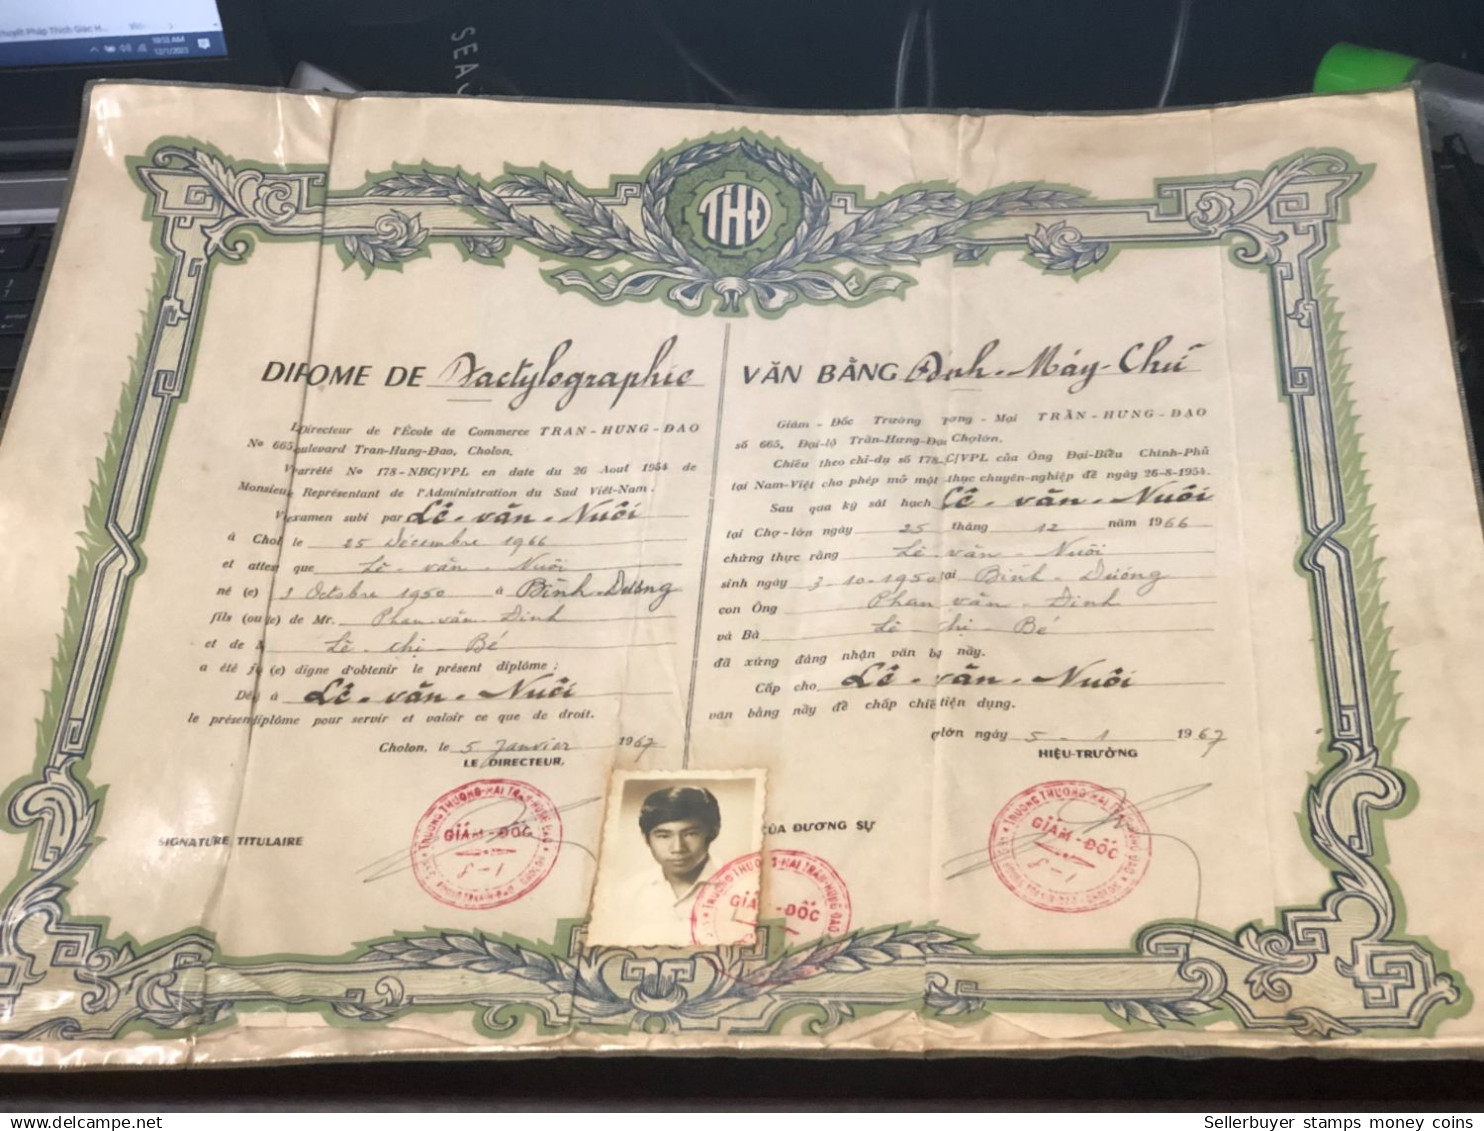 10:55 AM
12/1/2023
SEA
THĐ
DIPOME DE Dactylographie
Directeur de l'École de Commerce TRAN-HUNG-ĐAO
No 665, oulevard Tran-Hung-Đao, Cholon.
arrété No 178-NBC/VPL en date du 26 Aout 1954 de
Monsieur Représentant de l'Administration du Sud Viêt-Nam.
examen subi par Lê-văn-Nuôi
à Chol le 25 Décembre 1966
et attes que Lê-văn-Nuôi
né (e) 3 Octobre 1950 à Bình-Dương
fils (ou le) de Mr. Phan-văn-Dinh
et de M Lê-thị-Bé
a été ju (e) digne d'obtenir le présent diplôme :
Dél à Lê-văn-Nuôi
le présen diplôme pour servir et valoir ce que de droit.
Cholon, le 5 Janvier 1967
LE DIRECTEUR,
SIGNATURE TITULAIRE
GIÁM-ĐỐC
VĂN BẰNG Đánh-Máy-Chữ
Giám-Đốc Trường ương-Mại TRẦN-HƯNG-ĐẠO
số 665, Đại-lộ Trần-Hưng-Đạ Chợlớn.
Chiếu theo chỉ-dụ số 178- C/VPL của Ông Đại-Biểu Chính-Phủ
tại Nam-Việt cho phép mở một thục chuyên-nghiệp đề ngày 26-8-1954.
Sau qua kỳ sát hạch Lê-văn-Nuôi
tại Chợ-lớn ngày 25 tháng 12 năm 1966
chứng thực rằng Lê-văn-Nuôi
sinh ngày 3-10-1950 tại Bình-Dương
con Ông Phan văn-Dinh
và Bà Lê-thị-Bé
đã xứng đáng nhận văn bằ nầy.
Cấp cho Lê-văn-Nuôi
văn bằng nầy để chấp chiế tiện dụng.
lớn ngày 5-1 1967
HIỆU-TRƯỞNG
CỦA ĐƯƠNG SỰ
TRƯỜNG THƯƠNG-MẠI TRẦN-HƯNG ĐẠO
GIÁM-ĐỐC
GIÁM-ĐỐC
Sellerbuyer stamps money coins